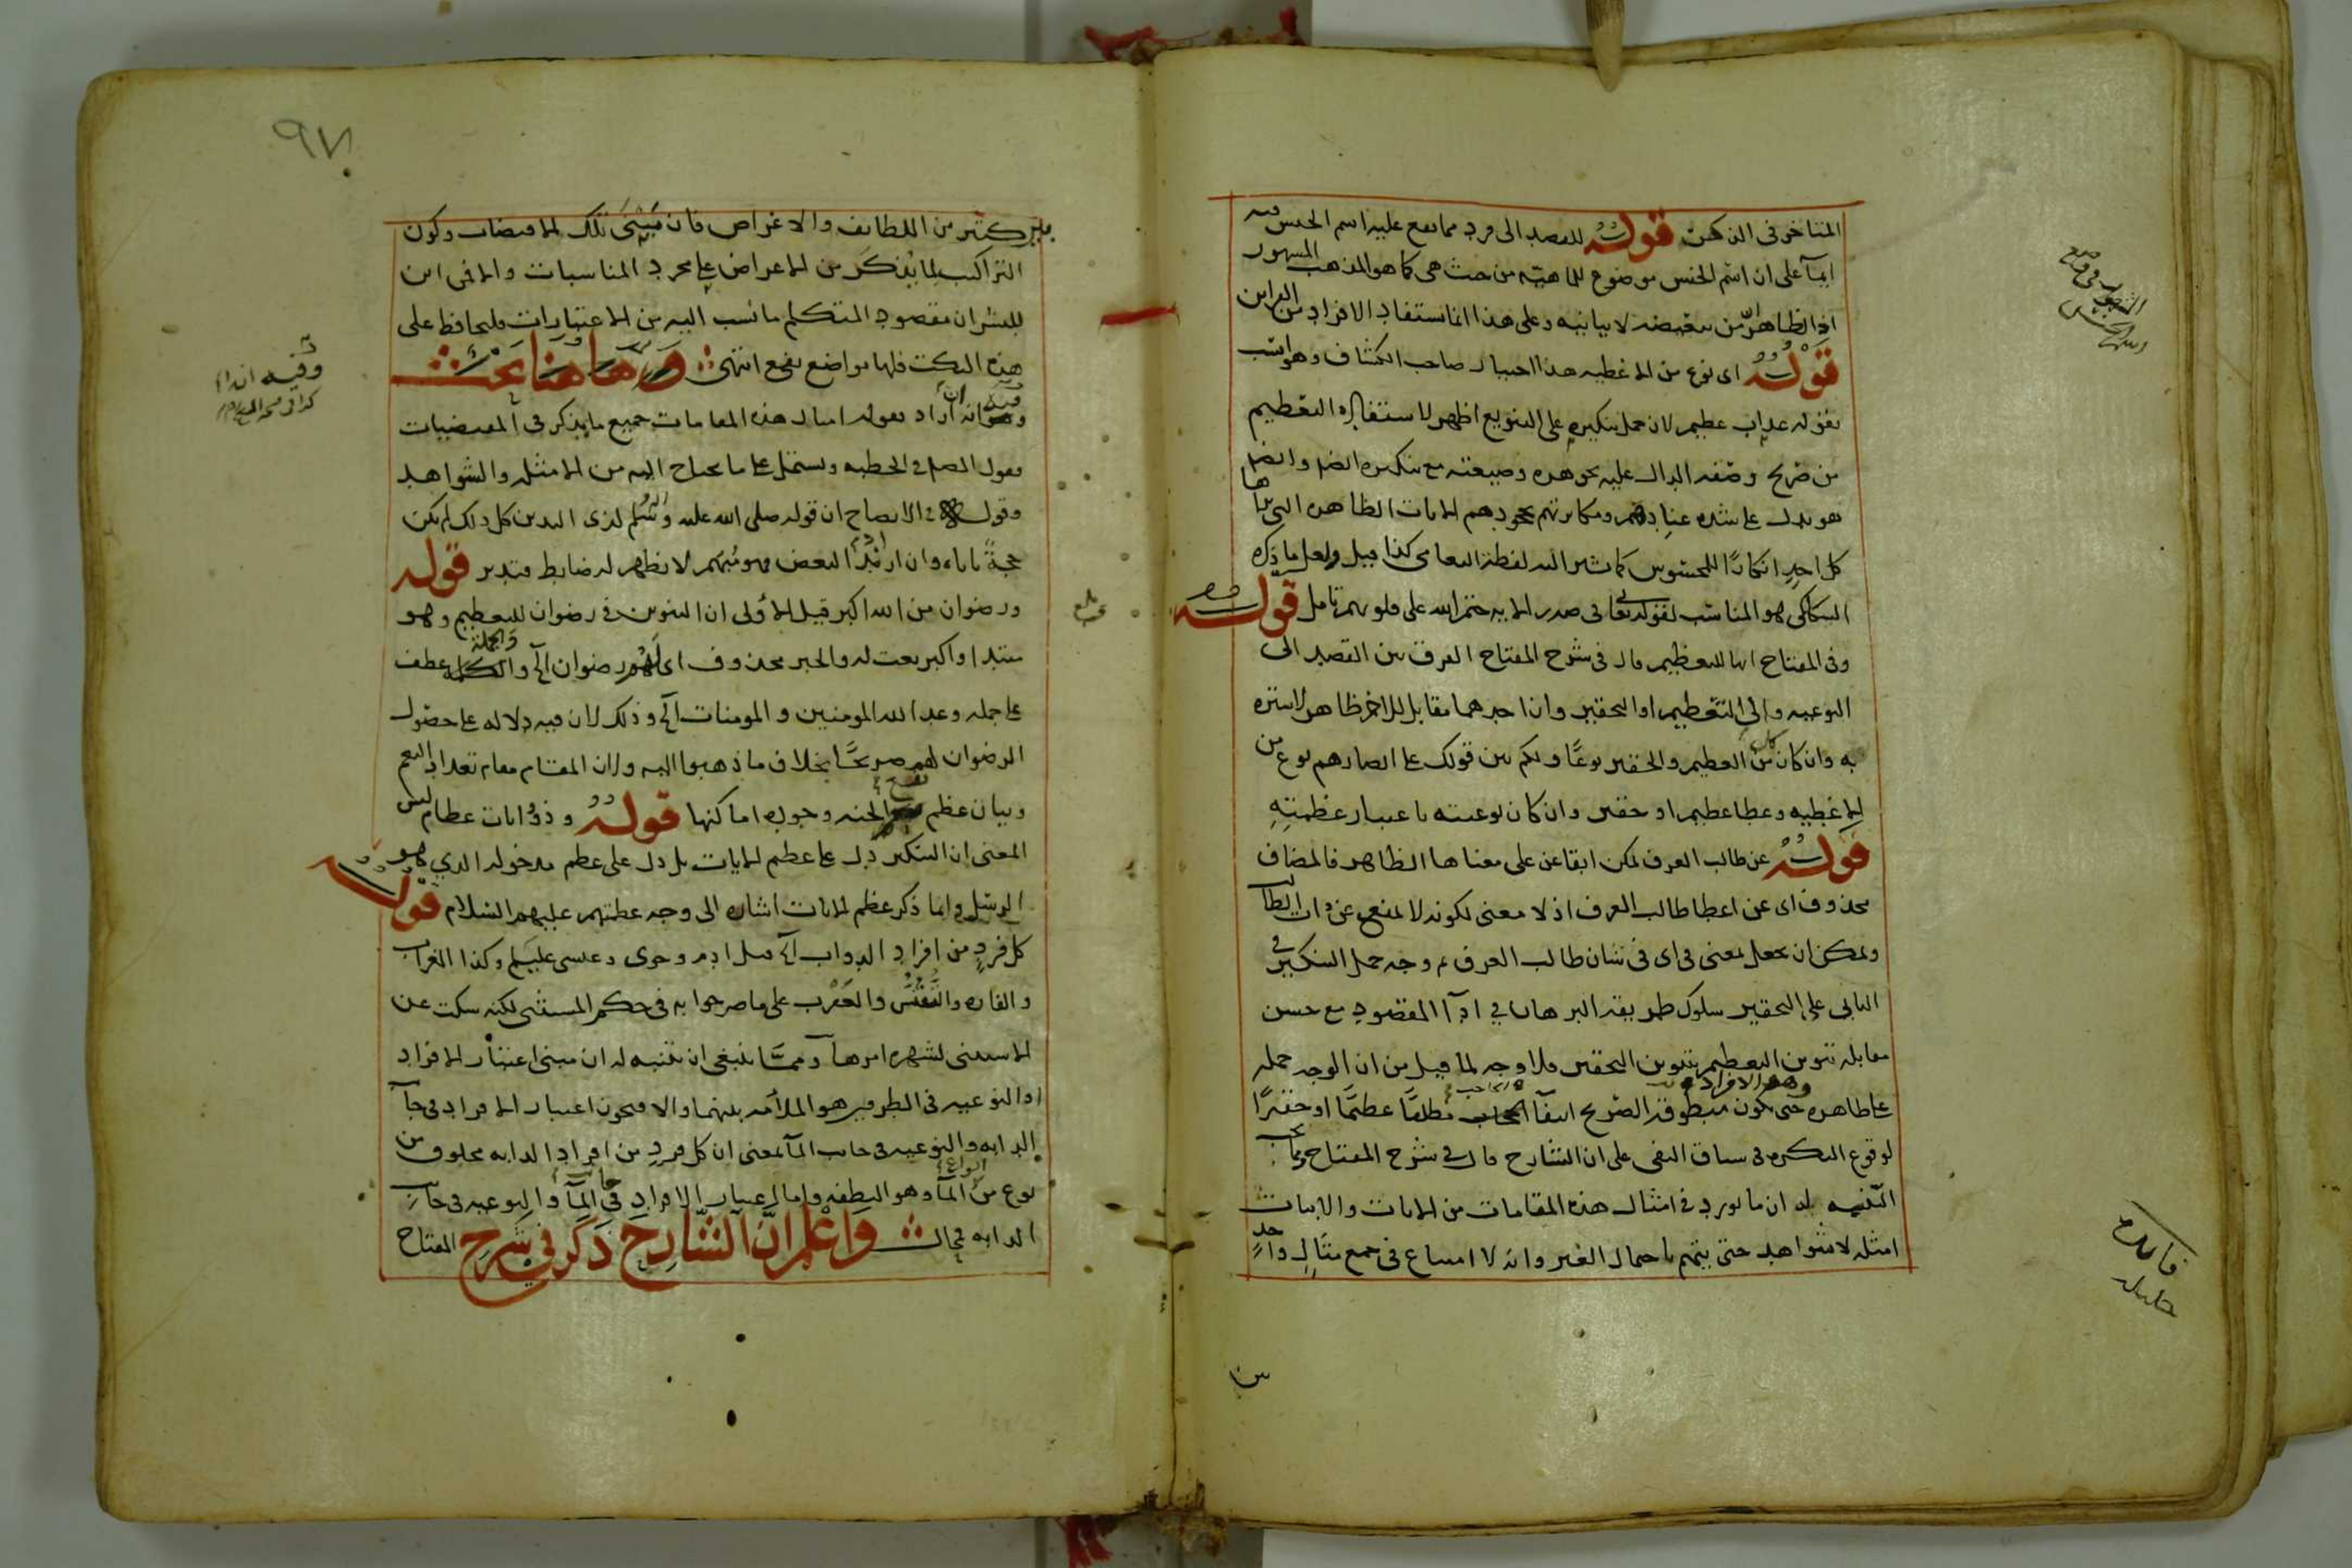 المتاخر فى الذكر قوله للقصد الى فرد مما يقع عليه اسم الجنس فيه
ايماء على ان اسم الجنس موضوع للماهية من حيث هى كما هو المذهب المشهور
اذ الظاهر من نقيضه لا يباينه وعلى هذا انما يستفاد الافراد من القراين
قوله اى نوع من الاغطيه هذا اختيار صاحب الكشاف وهو انسب
بقوله عذاب عظيم لان حمل تنكيره على التنويع اظهر لاستفادة التعظيم
من صريح وصفه الدال عليه بجوهره وصيغته مع تنكيره ايضا وايضا
هو يدل على شدة عنادهم ومكابرتهم بجحودهم الايات الظاهره التى
كل احد انكارا للمحسوس كما يشير اليه لفظة التعامى كذا قيل ولعل ما ذكره
السكاكى هو المناسب لقوله تعالى فى صدر الايه ختم الله على قلوبهم تامل قوله
وفى المفتاح انها للتعظيم قال فى شرح المفتاح الفرق بين القصد الى
النوعيه والى التعظيم او التحقير وان احدهما مقابل للاخر ظاهر لا ستره
به وان كان كل من العظيم والحقير نوعا وكم بين قولك على ابصارهم نوع من
الاغطيه وغطا عظيم او حقير وان كان نوعيته باعتبار عظمته
قوله عن طالب العرف يمكن ابقا عن على معناها الظاهر فالمضاف
محذوف اى عن اعطا طالب العرف اذ لا معنى لكونه لا يمنع عن ذات الطالب
ويمكن ان يجعل بمعنى فى اى فى شان طالب العرف ثم وجه حمل التنكير فى
الثانى على التحقير سلوك طريقة البرهان في ادآ المقصود مع حسن
مقابلة تنوين التعظيم بتنوين التحقير فلا وجه لما قيل من ان الوجه حمله
على ظاهره وهو الافراد حتى يكون منطوقه الصريح انتفآ الحاجب مطلقا عظيما او حقيرا
لوقوع النكره فى سياق النفى على ان الشارح قال فى شرح المفتاح ومما يجب
التنبيه له ان ما يورد فى امثال هذه المقامات من الايات والابيات
امثله لا شواهد حتى يتهم باحتمال الغير وانه لا امتناع فى جمع مثال واحد
فايده
جليله
من
٩٧
كثير من اللطايف والاغراض فان مبنى تلك الاقتضات وكون
التراكيب لما يذكر من الاعراض على مجرد المناسبات والا فمن اين
للبشر ان مقصود المتكلم ما نسب اليه من الاعتبارات فليحافظ على
هذه النكت فلها مواضع نفع انتهى وهاهنا بحث
وهو انه ان اراد بقوله امثال هذه المقامات جميع ما يذكر فى المقتضيات
فقول المصنف فى الخطبه ويشتمل على ما يحتاج اليه من الامثله والشواهد
وقوله فى الايضاح ان قوله صلى الله عليه وسلم لذى اليدين كل ذلك لم يكن
حجة ياباه وان اريد البعض فهو مبهم لا يظهر له ضابط فتدبر قوله
ورضوان من الله اكبر قيل الأولى ان التنوين فى رضوان للتعظيم وهو
مبتدا واكبر نعت له والخبر محذوف اى لهم رضوان الخ والجمله عطف
على جمله وعد الله المومنين والمومنات الخ وذلك لان فيه دلاله على حصول
الرضوان لهم صريحا بخلاف ما ذهبوا اليه ولان المقام مقام تعداد النعم
وبيان عظم الجنه وجوده اماكنها قوله وذو ايات عظام ليس
المعنى ان التنكير دل على عظم الايات بل دل على عظم مدخوله الذي هو
الرسل وانما ذكر عظم الايات اشاره الى وجه عظمتهم عليهم السلام قوله
كل فرد من افراد الدواب الخ قيل ادم وحوى وعيسى عليهم وكذا الغراب
والفاره والعقرب على ما صرحوا به فى حكم المستثنى لكنه سكت عن
الاستثنى لشهرة امرها ومما ينبغى ان يتنبه له ان مبنى اعتبار الافراد
او النوعيه فى الطرفين هو الملأمه بينهما والا فيجوز اعتبار الافراد فى جآنب
الدابه والنوعيه فى جانب المآ بمعنى ان كل فرد من افراد الدابه مخلوق من
نوع من انواع المآ وهو النطفه واما اعتبار الافراد فى جانب المآ والنوعيه فى جانب
الدابه فمحال واعلم ان الشارح ذكر في شرح المفتاح